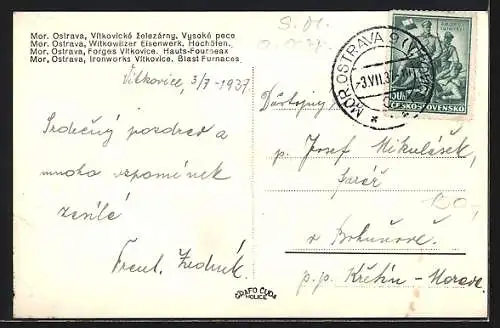 Mor. Ostrava, Vítkovické železárny, Vysoké pece
Mor. Ostrava, Witkowitzer Eisenwerk, Hochöfen.
Mor. Ostrava, Forges Vítkovice. Hauts-Fourneax
Mor. Ostrava, Ironworks Vítkovice, Blast Furnaces
Vítkovice, 3/7 - 1937.
Srdečný pozdrav a
mnoho vzpomínek
zasílá
Frant. Zedník.
MOR. OSTRAVA 9
3.VII.3
50h
ČESKOSLOVENSKO
Důstojný
p. Josef Mikulášek,
farář
v Bohuňově.
p.p. Křetín - Morava.
GRAFO ČUDA
HOLICE